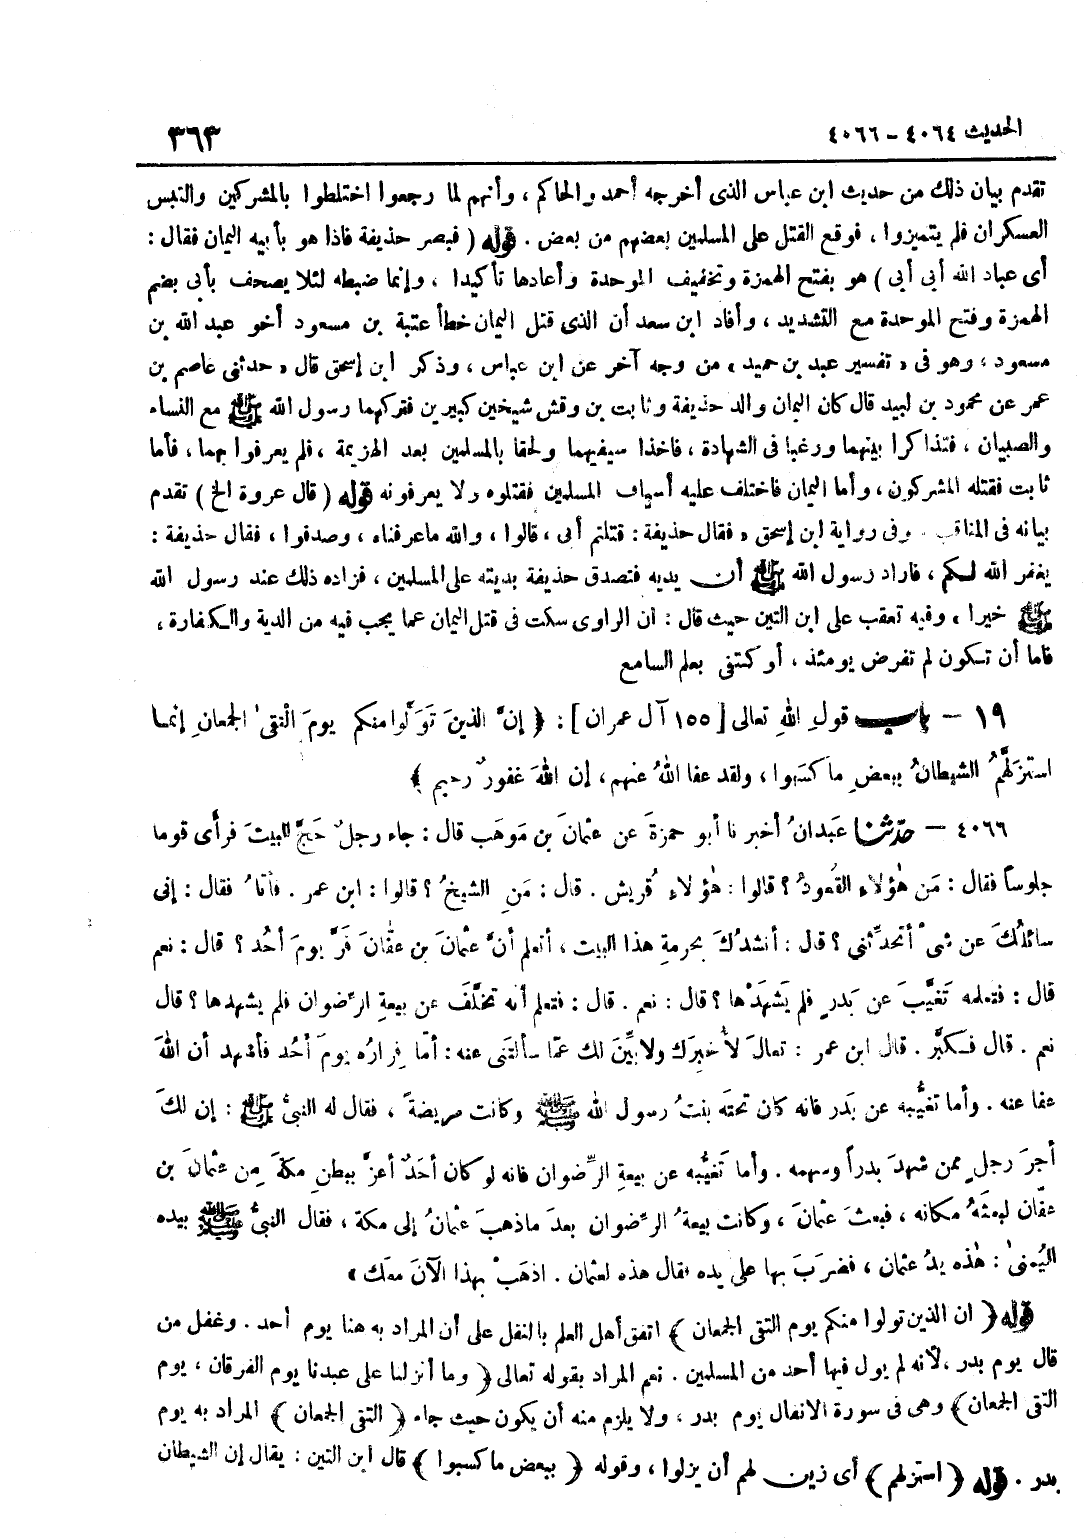 الحديث ٤٠٦٤ - ٤٠٦٦
٣٦٣
تقدم بيان ذلك من حديث ابن عباس الذى أخرجه أحمد والحاكم ، وأنهم لما رجعوا اختلطوا بالمشركين والتبس
العسكران فلم يتميزوا ، فوقع القتل على المسلمين بعضهم من بعض . قوله ( فبصر حذيفة فاذا هو بأبيه اليمان فقال :
أى عباد الله أبى أبى ) هو بفتح الهمزة وتخفيف الموحدة وأعادها تأكيدا ، وإنما ضبطه لئلا يصحف بأبي بضم
الهمزة وفتح الموحدة مع التشديد ، وأفاد ابن سعد أن الذى قتل اليمان خطأ عتبة بن مسعود أخو عبد الله بن
مسعود ، وهو فى « تفسير عبد بن حميد » من وجه آخر عن ابن عباس ، وذكر ابن إسحق قال « حدثنى عاصم بن
عمر عن محمود بن لبيد قال كان اليمان والد حذيفة وثابت بن وقش شيخين كبيرين فتركهما رسول الله ﷺ مع النساء
والصبيان ، فتذاكرا بينهما ورغبا فى الشهادة ، فاخذا سيفيهما ولحقا بالمسلمين بعد الهزيمة ، فلم يعرفوا بهما ، فأما
ثابت فقتله المشركون ، وأما اليمان فاختلف عليه أسياف المسلمين فقتلوه ولا يعرفونه قوله ( قال عروة الخ ) تقدم
بيانه فى المناقب . وفى رواية ابن إسحق « فقال حذيفة : قتلتم أبى ، قالوا ، والله ماعرفناه ، وصدقوا ، فقال حذيفة :
يغفر الله لكم ، فاراد رسول الله ﷺ أن يديه فتصدق حذيفة بديته على المسلمين ، فزاده ذلك عند رسول الله
ﷺ خيرا » وفيه تعقب على ابن التين حيث قال : ان الراوى سكت فى قتل اليمان عما يجب فيه من الدية والكفارة ،
فاما أن تكون لم تفرض يومئذ ، أو كتفى بعلم السامع
١٩ - باب قولِ اللهِ تعالى [ ١٥٥ آل عمران ] : ﴿ إنَّ الذينَ تَوَلَّوا منكم يومَ الْتقىٰ الجمعانِ إنما
استزلَّهُم الشيطانُ ببعضِ ما كسَبوا ، ولقد عفا اللهُ عنهم ، إن اللهَ غفورٌ رحيم ﴾
٤٠٦٦ - حدّثنا عَبدانُ أخبرنا أبو حمزةَ عن عثمانَ بن مَوهَب قال : جاء رجلٌ حَجَّ البيتَ فرأى قوما
جلوساً فقال : مَن هٰؤلاء القعودُ ؟ قالوا : هٰؤلاءِ قُريش . قال : مَنِ الشيخُ ؟ قالوا : ابن عمر . فأتاهُ فقال : إنى
سائلُكَ عن شىْءٍ أتحدِّثنى ؟ قال : أنشدُكَ بحرمةِ هذا البيت ، أتعلم أنَّ عثمانَ بن عفّانَ فَرَّ يومَ أُحُد ؟ قال : نعم
قال : فتعلمه تَغيَّبَ عن بَدرٍ فلم يَشهَدْها ؟ قال : نعم . قال : فتعلم أنه تخلَّفَ عن بيعةِ الرِّضوان فلم يشهدها ؟ قال
نعم . قال فكبَّر . قال ابن عمر : تعالَ لأُخبرَك ولابيِّنَ لك عمّا سألتَنى عنه : أمّا فِرارُه يومَ أُحُد فأشهد أن اللهَ
عفا عنه . وأما تغيُّبه عن بَدر فانه كان تحتَه بنتُ رسول الله ﷺ وكانت مريضةً ، فقال له النبىُّ ﷺ : إن لكَ
أجرَ رجلٍ ممن شهدَ بدراً وسهمه . وأما تَغيُّبه عن بيعةِ الرِّضوان فانه لو كان أحَدٌ أعزَّ ببطنِ مكةَ مِن عثمانَ بن
عفّان لبعثَهُ مكانه ، فبعث عثمانَ ، وكانت بيعةُ الرِّضوان بعدَ ماذهبَ عثمانُ إلى مكة ، فقال النبىُّ ﷺ بيده
اليُمنىٰ : هٰذه يدُ عثمان ، فضرَبَ بها على يده فقال هذه لعثمان . اذهَبْ بهذا الآنَ معَك »
قوله ﴿ ان الذين تولوا منكم يوم التقى الجمعان ﴾ اتفق أهل العلم بالنقل على أن المراد به هنا يوم أحد . وغفل من
قال يوم بدر ، لأنه لم يول فيها أحد من المسلمين . نعم المراد بقوله تعالى ﴿ وما أنزلنا على عبدنا يوم الفرقان ، يوم
التقى الجمعان ﴾ وهى فى سورة الانفال يوم بدر ، ولا يلزم منه أن يكون حيث جاء ﴿ التقى الجمعان ﴾ المراد به يوم
بدر . قوله ﴿ استزلهم ﴾ أى زين لهم أن يزلوا ، وقوله ﴿ ببعض ما كسبوا ﴾ قال ابن التين : يقال إن الشيطان